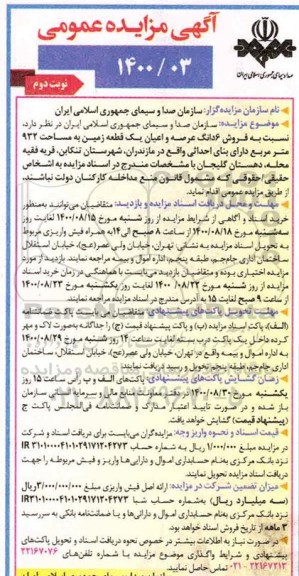 آگهی مزایده عمومی
۱۴۰۰/۰۳
صدا و سیمای جمهوری اسلامی ایران
نوبت دوم
نام سازمان مزایده‌گزار: سازمان صدا و سیمای جمهوری اسلامی ایران
موضوع مزایده: سازمان صدا و سیمای جمهوری اسلامی ایران در نظر دارد،
نسبت به فروش ۶دانگ عرصه و اعیان یک قطعه زمین به مساحت ۹۳۲
متر مربع دارای بنای احداثی واقع در مازندران، شهرستان تنکابن، قریه فقیه
محله، دهستان گلیجان با مشخصات مندرج در اسناد مزایده به اشخاص
حقیقی/حقوقی که مشمول قانون منع مداخله کارکنان دولت نباشند،
از طریق مزایده عمومی اقدام نماید.
مهلت و محل دریافت اسناد مزایده و بازدید: متقاضیان می‌توانند به‌منظور
خرید اسناد و آگاهی از شرایط مزایده از روز شنبه مورخ ۱۴۰۰/۰۸/۱۵ لغایت روز
سه‌شنبه مورخ ۱۴۰۰/۰۸/۱۸ از ساعت ۸ صبح الی ۱۴ به همراه فیش واریزی مربوط
به تحویل اسناد مزایده به نشانی تهران، خیابان ولی عصر(عج)، خیابان استقلال
ساختمان اداری جام‌جم، طبقه پنجم، اداره اموال و بیمه مراجعه نمایند. بازدید از مورد
مزایده اختیاری بوده و متقاضیان بازدید می‌بایست با هماهنگی در زمان خرید اسناد
مزایده از روز شنبه مورخ ۱۴۰۰/۰۸/۲۲ لغایت روز یکشنبه مورخ ۱۴۰۰/۰۸/۲۳
از ساعت ۹ صبح لغایت ۱۵ به آدرس مندرج در اسناد مزایده مراجعه نمایند.
مهلت تحویل پاکت‌های پیشنهادی: متقاضیان می‌بایست پاکت ضمانتنامه
(الف)، پاکت اسناد مزایده (ب) و پاکت پیشنهاد قیمت (ج) را جداگانه به‌صورت لاک و مهر
کرده داخل یک پاکت درب بسته لغایت ساعت ۱۴ روز شنبه مورخ ۱۴۰۰/۰۸/۲۹
به اداره اموال و بیمه واقع در تهران، خیابان ولی عصر(عج)، خیابان استقلال، ساختمان
اداری جام‌جم، طبقه پنجم تحویل و رسید دریافت نمایند.
زمان گشایش پاکت‌های پیشنهادی: پاکت‌های الف و ب راس ساعت ۱۵ روز
یکشنبه مورخ ۱۴۰۰/۰۸/۳۰
باز شده و در صورت تایید اعتبار مدارک و ضمانتنامه فی‌المجلس پاکت ج
(پیشنهاد قیمت) گشایش خواهد یافت.
قیمت اسناد و نحوه واریز وجه: مزایده‌گران می‌بایست برای دریافت اسناد و شرکت
در مزایده مبلغ ۱/۰۰۰/۰۰۰ ریال به شماره حساب
نزد بانک مرکزی به‌نام حسابداری اموال و دارایی‌ها واریز و فیش مربوطه را جهت
دریافت اسناد مزایده تحویل نمایند.
میزان تضمین شرکت در مزایده: ارائه اصل فیش واریزی مبلغ ۳/۰۰۰/۰۰۰/۰۰۰ریال
(سه میلیارد ریال) به‌شماره حساب شبا
نزد بانک مرکزی به‌نام حسابداری اموال و دارائی‌ها و یا ضمانتنامه بانکی به سررسید
۳ ماهه از تاریخ فروش اسناد خواهد بود.
در صورت نیاز به اطلاعات بیشتر در خصوص نحوه دریافت اسناد و تحویل پاکت‌های
پیشنهادی و شرایط واگذاری موضوع مزایده با شماره تلفن‌های ۲۲۱۶۷۰۷۶
۲۲۱۶۷۲۱۳-۰۲۱ تماس حاصل نمایید.